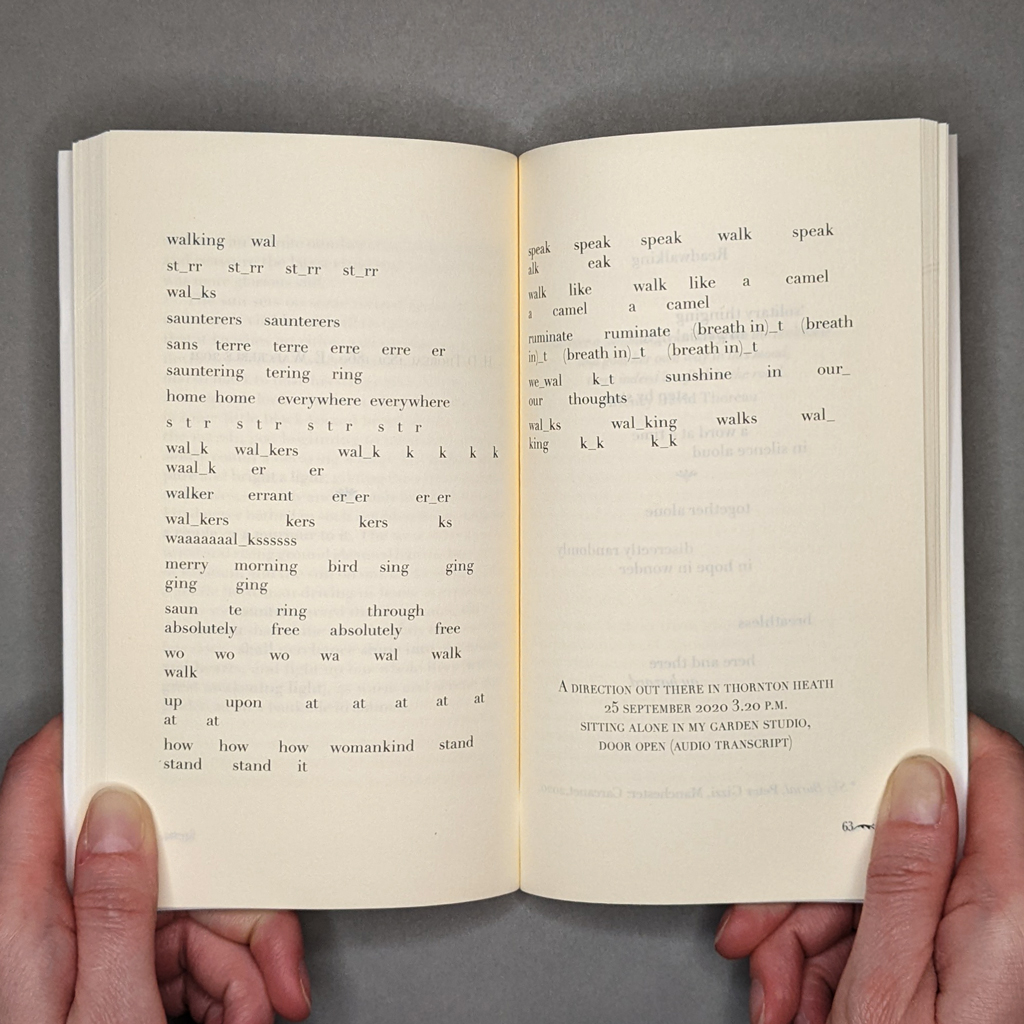 walking wal
st_rr st_rr st_rr st_rr
wal_ks
saunterers saunterers
sans terre terre erre erre er
sauntering tering ring
home home everywhere everywhere
s t r s t r s t r s t r
wal_k wal_kers wal_k k k k k
waal_k er er
walker errant er_er er_er
wal_kers kers kers ks
waaaaaaal_kssssss
merry morning bird sing ging
ging ging
saun te ring through
absolutely free absolutely free
wo wo wo wa wal walk
walk
up upon at at at at at
at at
how how how womankind stand
stand stand it
speak speak speak walk speak
alk eak
walk like walk like a camel
a camel a camel
ruminate ruminate (breath in)_t (breath
in)_t (breath in)_t (breath in)_t
we_wal k_t sunshine in our_
our thoughts
wal_ks wal_king walks wal_
king k_k k_k
A DIRECTION OUT THERE IN THORNTON HEATH
25 SEPTEMBER 2020 3.20 P.M.
SITTING ALONE IN MY GARDEN STUDIO,
DOOR OPEN (AUDIO TRANSCRIPT)
63